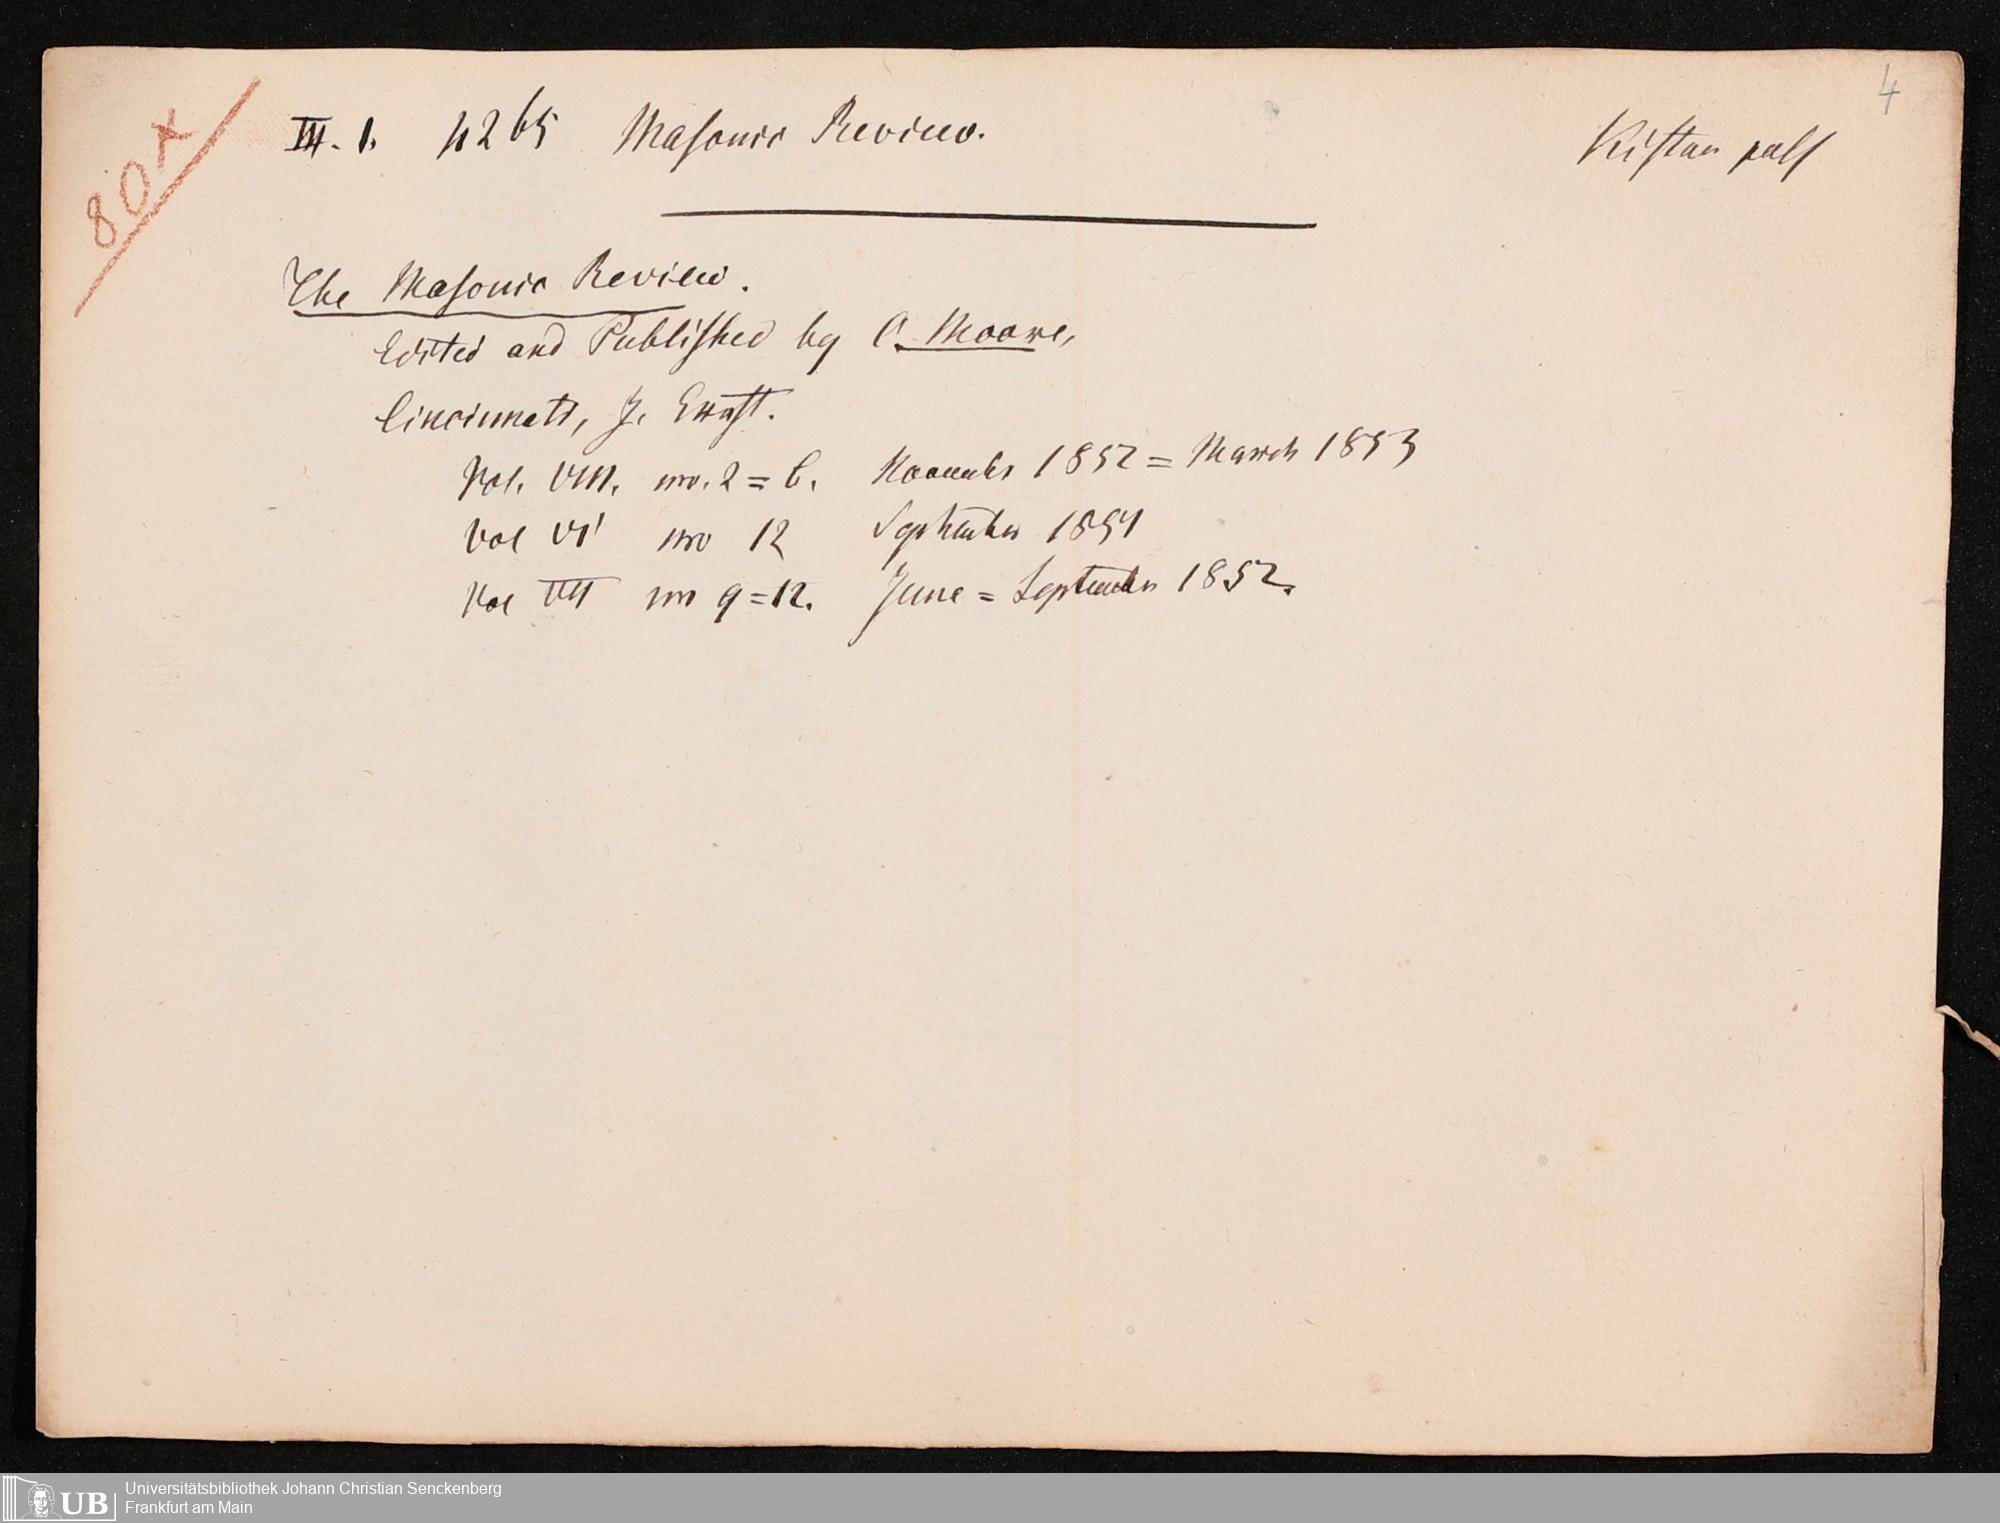 4
80 x
III. 1. 4265 Masonic Review.
The Masonic Review.
Edited and Published by C. Moore,
Cincinnati, J. Ernst.
Vol. VIII. nro. 2 = 6. November 1852 = March 1853
Vol VI nro 12 September 1851
Vol VII nro 9 = 12. June = September 1852.
Universitätsbibliothek Johann Christian Senckenberg
UB Frankfurt am Main